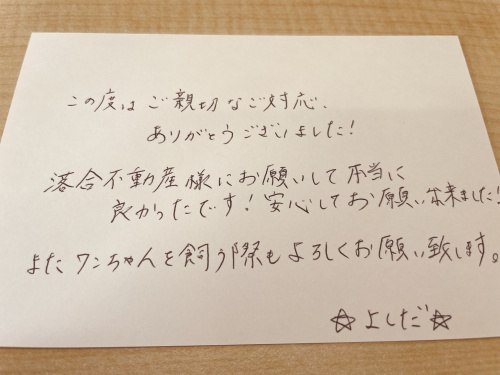 この度はご親切なご対応、
ありがとうございました!
落合不動産様にお願いして本当に
良かったです!安心してお願い出来ました!
またワンちゃんを飼う際もよろしくお願い致します。
☆よしだ☆